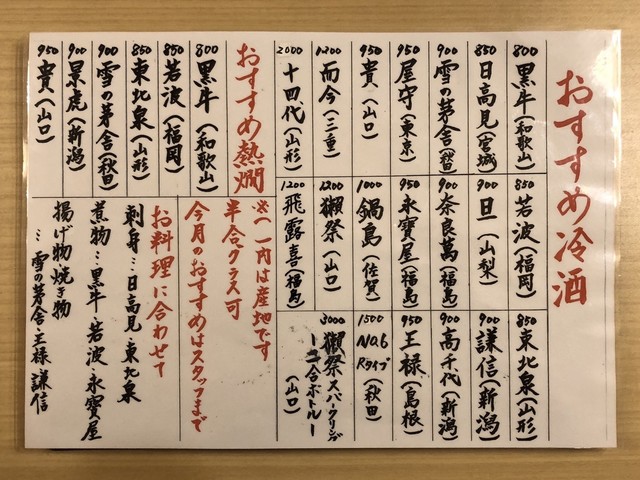 おすすめ冷酒
800 黒牛（和歌山）
850 日高見（宮城）
900 雪の茅舎（秋田）
950 屋守（東京）
950 貴（山口）
1200 而今（三重）
2000 十四代（山形）
850 若波（福岡）
900 旦（山梨）
900 奈良萬（福島）
950 永寶屋（福島）
1000 鍋島（佐賀）
1200 獺祭（山口）
1200 飛露喜（福島）
850 東北泉（山形）
900 謙信（新潟）
900 高千代（新潟）
950 王祿（島根）
1500 No.6 Rタイプ（秋田）
3000 獺祭スパークリング
ー二合ボトルー
（山口）
おすすめ熱燗
800 黒牛（和歌山）
850 若波（福岡）
850 東北泉（山形）
900 雪の茅舎（秋田）
900 景虎（新潟）
950 貴（山口）
※（ ）内は産地です
半合グラス可
今月のおすすめはスタッフまで
お料理に合わせて
刺身…日高見・東北泉
煮物…黒牛・若波・永寶屋
揚げ物焼き物
…雪の茅舎・王祿・謙信